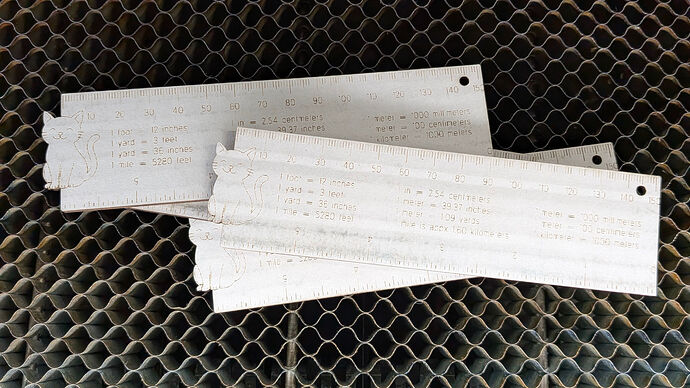 10 20 30 40 50 60 70 80 90 100 110 120 130 140 150
1 foot = 12 inches
1 yard = 3 feet
1 yard = 36 inches
1 mile = 5280 feet
in = 2.54 centimeters
39.37 inches
meter = 1000 millimeters
meter = 100 centimeters
kilometer = 1000 meters
5
10 20 30 40 50 60 70 80 90 100 110 120 130 140 150
1 foot = 12 inches
1 yard = 3 feet
1 yard = 36 inches
1 mile = 5280 feet
in = 2.54 centimeters
meter = 39.37 inches
meter = 1.09 yards
mile is appx 1.60 kilometers
meter = 1000 millimeters
meter = 100 centimeters
kilometer = 1000 meters
5 4 3 2 1
140
1 mile = 5280 feet
5 4